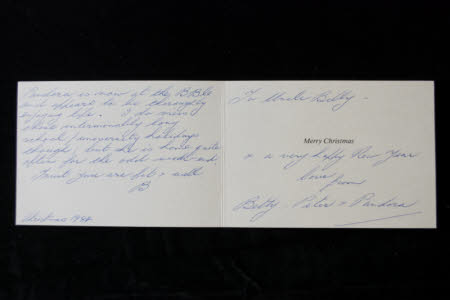 Pandora is now at the B.B.C
and appears to be thoroughly
enjoying life. I do miss
those interminably long
school / university holidays
though, but she is home quite
often for the odd week-end.
Trust you are fit & well
B
Christmas 1984.
To Uncle Billy -
Merry Christmas
& a very happy New Year
love
from
Betty, Peter & Pandora